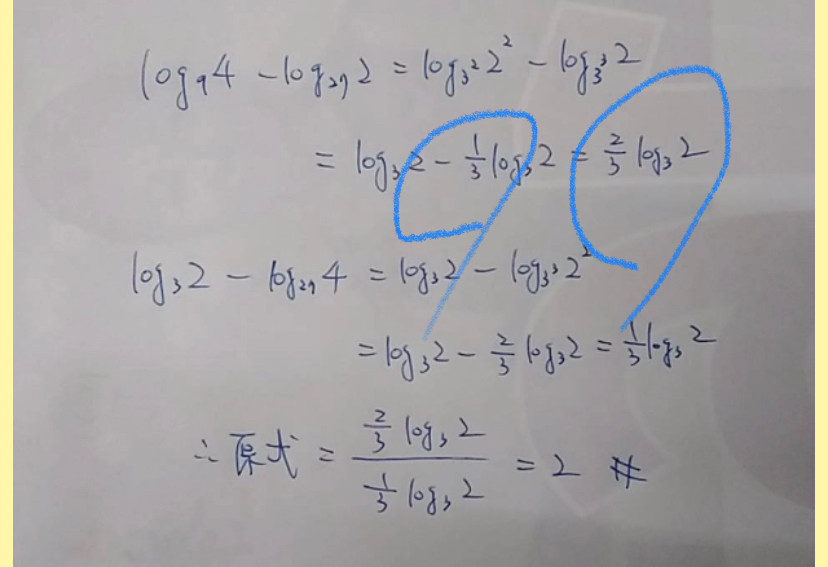 log₉4 − log₂₇2 = log₃²2² − log₃³2
= log₃2 − 1/3 log₃2 = 2/3 log₃2
log₃2 − log₂₇4 = log₃2 − log₃³2²
= log₃2 − 2/3 log₃2 = 1/3 log₃2
∴ 原式 = (2/3 log₃2)/(1/3 log₃2) = 2 #